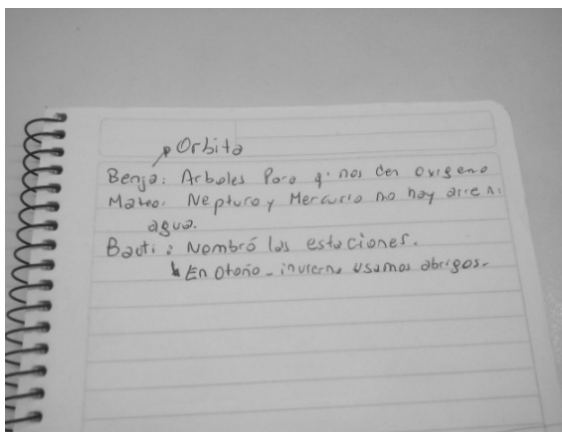 Orbita
Benja: Arboles Para q' nos den oxigeno
Mateo: Nepturo y Mercurio no hay aire ni
agua.
Bauti: Nombró las estaciones.
En Otoño - invierno usamos abrigos.